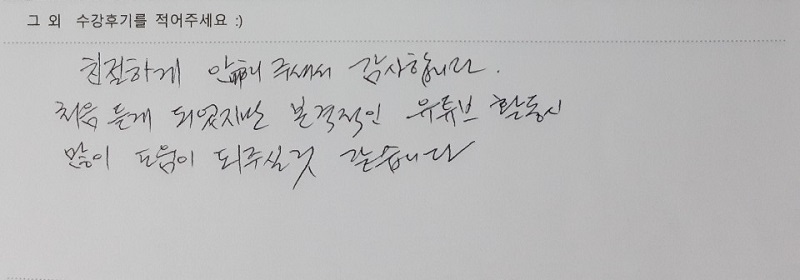 그 외 수강후기를 적어주세요 :)
친절하게 안내해 주셔서 감사합니다.
처음 듣게 되었지만 본격적인 유튜브 활동시
많이 도움이 되주실것 같습니다